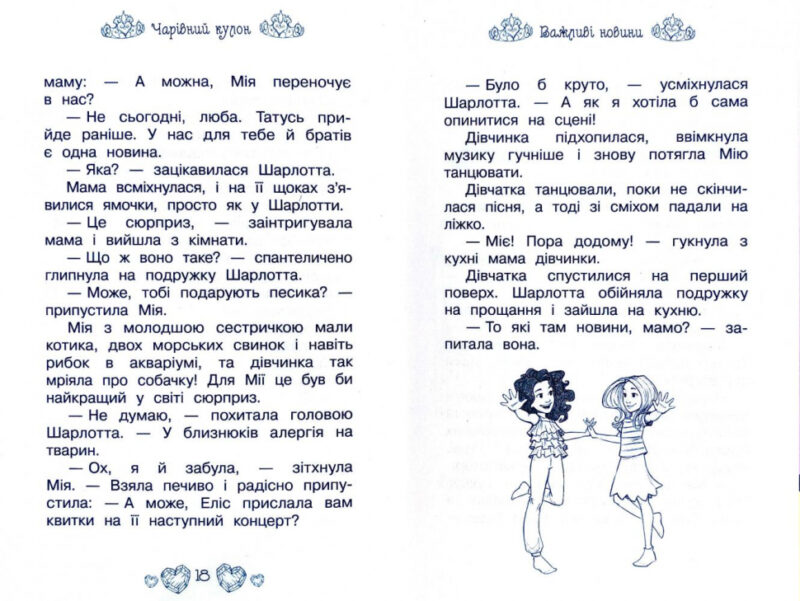 Чарівний кулон
маму: — А можна, Мія переночує
в нас?
— Не сьогодні, люба. Татусь при-
йде раніше. У нас для тебе й братів
є одна новина.
— Яка? — зацікавилася Шарлотта.
Мама всміхнулася, і на її щоках з’я-
вилися ямочки, просто як у Шарлотти.
— Це сюрприз, — заінтригувала
мама і вийшла з кімнати.
— Що ж воно таке? — спантеличено
глипнула на подружку Шарлотта.
— Може, тобі подарують песика? —
припустила Мія.
Мія з молодшою сестричкою мали
котика, двох морських свинок і навіть
рибок в акваріумі, та дівчинка так
мріяла про собачку! Для Мії це був би
найкращий у світі сюрприз.
— Не думаю, — похитала головою
Шарлотта. — У близнюків алергія на
тварин.
— Ох, я й забула, — зітхнула
Мія. — Взяла печиво і радісно припу-
стила: — А може, Еліс прислала вам
квитки на її наступний концерт?
18
Важливі новини
— Було б круто, — усміхнулася
Шарлотта. — А як я хотіла б сама
опинитися на сцені!
Дівчинка підхопилася, ввімкнула
музику гучніше і знову потягла Мію
танцювати.
Дівчатка танцювали, поки не скінчи-
лася пісня, а тоді зі сміхом падали на
ліжко.
— Міє! Пора додому! — гукнула з
кухні мама дівчинки.
Дівчатка спустилися на перший
поверх. Шарлотта обійняла подружку
на прощання і зайшла на кухню.
— То які там новини, мамо? — за-
питала вона.